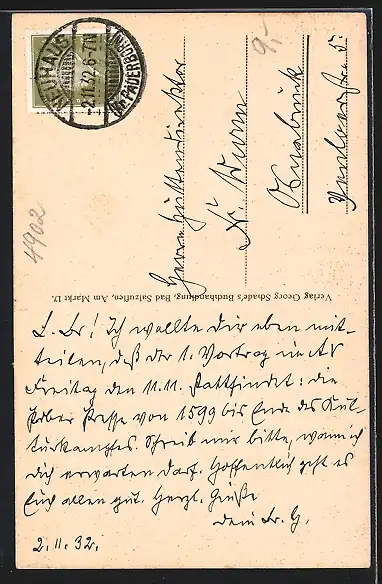 NEUHAUS
(Kr. PADERBORN)
-2.11.32.6-7N
9.-
Herrn Hüttendirektor
Dr. Wurm
Osnabrück
4902
Verlag Georg Schade's Buchhandlung, Bad Salzuflen, Am Markt 17.
L. Br! Ich wollte Dir eben mit-
teilen, daß der 1. Vortrag im AV
Freitag den 11.11. stattfindet: die
Pdber Presse von 1599 bis Ende des Kul-
turkampfes. Schreib mir bitte, wann ich
dich erwarten darf. Hoffentlich geht es
Euch allen gut. Herzl. Grüße
dein Br. G.
2.11.32.